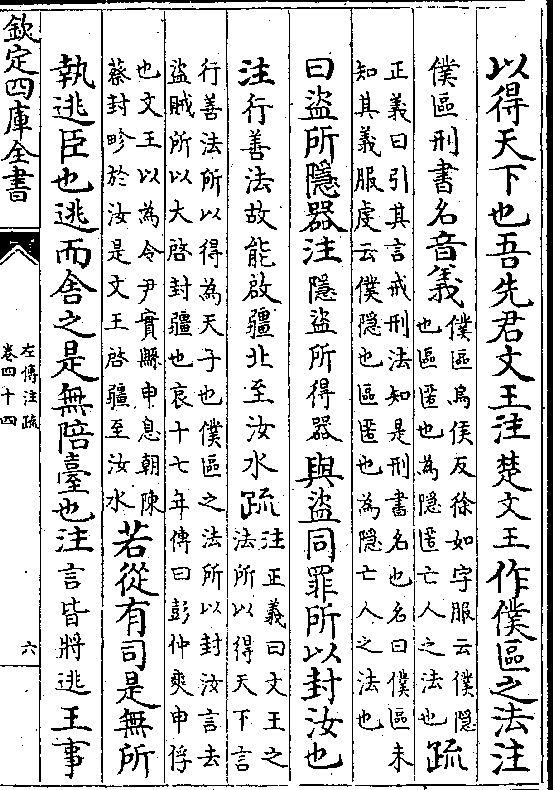 以得天下也吾先君文王注楚文王作僕區之法注
僕區刑書名音義僕區烏侯反徐如字服云僕隱也區匿也為隱匿亡人之法也疏
正義曰引其言戒刑法知是刑書名也名曰僕區未知其義服虔云僕隱也區匿也為隱亡人之法也
曰盜所隱器注隱盜所得器與盜同罪所以封汝也
注行善法故能啟疆北至汝水疏注正義曰文王之法所以得天下言
行善法所以得為天子也僕區之法所以封汝言去盜賊所以大啓封疆也哀十七年傳曰彭仲爽申俘
也文王以為令尹實縣申息朝陳蔡封畛於汝是文王啓疆至汝水若從有司是無所
執逃臣也逃而舍之是無陪臺也注言皆將逃王事
欽定四庫全書
左傳注疏
卷四十四
六